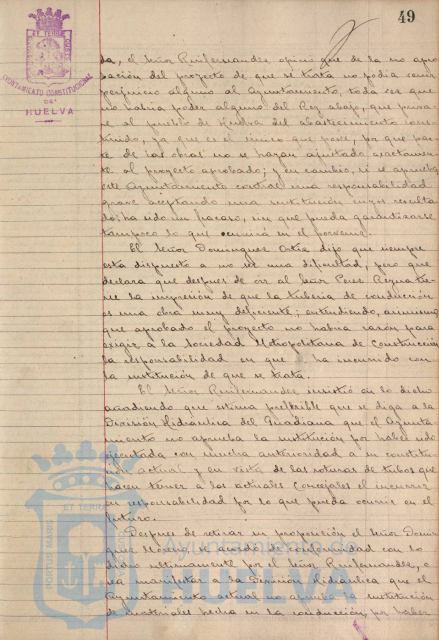 49
AYUNTAMIENTO CONSTITUCIONAL
DE
HUELVA
da, el Señor Ruifernandez opinó que de la no apro-
bación del proyecto de que se trata no podia venir
perjuicio alguno al Ayuntamiento, toda vez que
no habia poder alguno del Rey abajo, que priva-
re al pueblo de Huelva del abastecimiento cons-
truido, ya que es el único que posée, por que par-
te de las obras no se hayan ajustado exactamen-
te al proyecto aprobado; y en cambio, si se aprueba
este Ayuntamiento contrae una responsabilidad
grave aceptando una sustitución cuyos resulta-
dos ha sido un fracaso, sin que pueda garantizarse
tampoco lo que ocurrirá en el porvenir.
El Señor Dominguez Ortiz dijo que siempre
está dispuesto a no ser una dificultad, pero que
declara que despues de oir al Señor Perez tie-
ne la impresión de que la tuberia de conducción
es una obra muy deficiente; entendiendo,
que aprobado el proyecto no habrá razón para
exigir a la Sociedad Metropolitana de Construcción
la responsabilidad en que ha incurrido con
la sustitución de que se trata.
El Señor Ruifernandez insistió en lo dicho
añadiendo que estima preferible que se diga a la
División Hidraulica del Guadiana que el Ayunta-
miento no aprueba la sustitución por haber sido
ejecutada con mucha anterioridad a su constitu-
ción actual y en vista de las roturas de tubos que
hacen temer a los actuales Concejales el incurrir
en responsabilidad por lo que pueda ocurrir en el
futuro.
Despues de retirar su proposición el Señor Domin-
guez se acordó de conformidad con lo
dicho ultimamente por el Señor Ruifernandez, o
sea manifestar a la División Hidráulica que el
Ayuntamiento actual no aprueba la sustitución
de materiales hecha en la conducción por haber
Ayuntamiento de